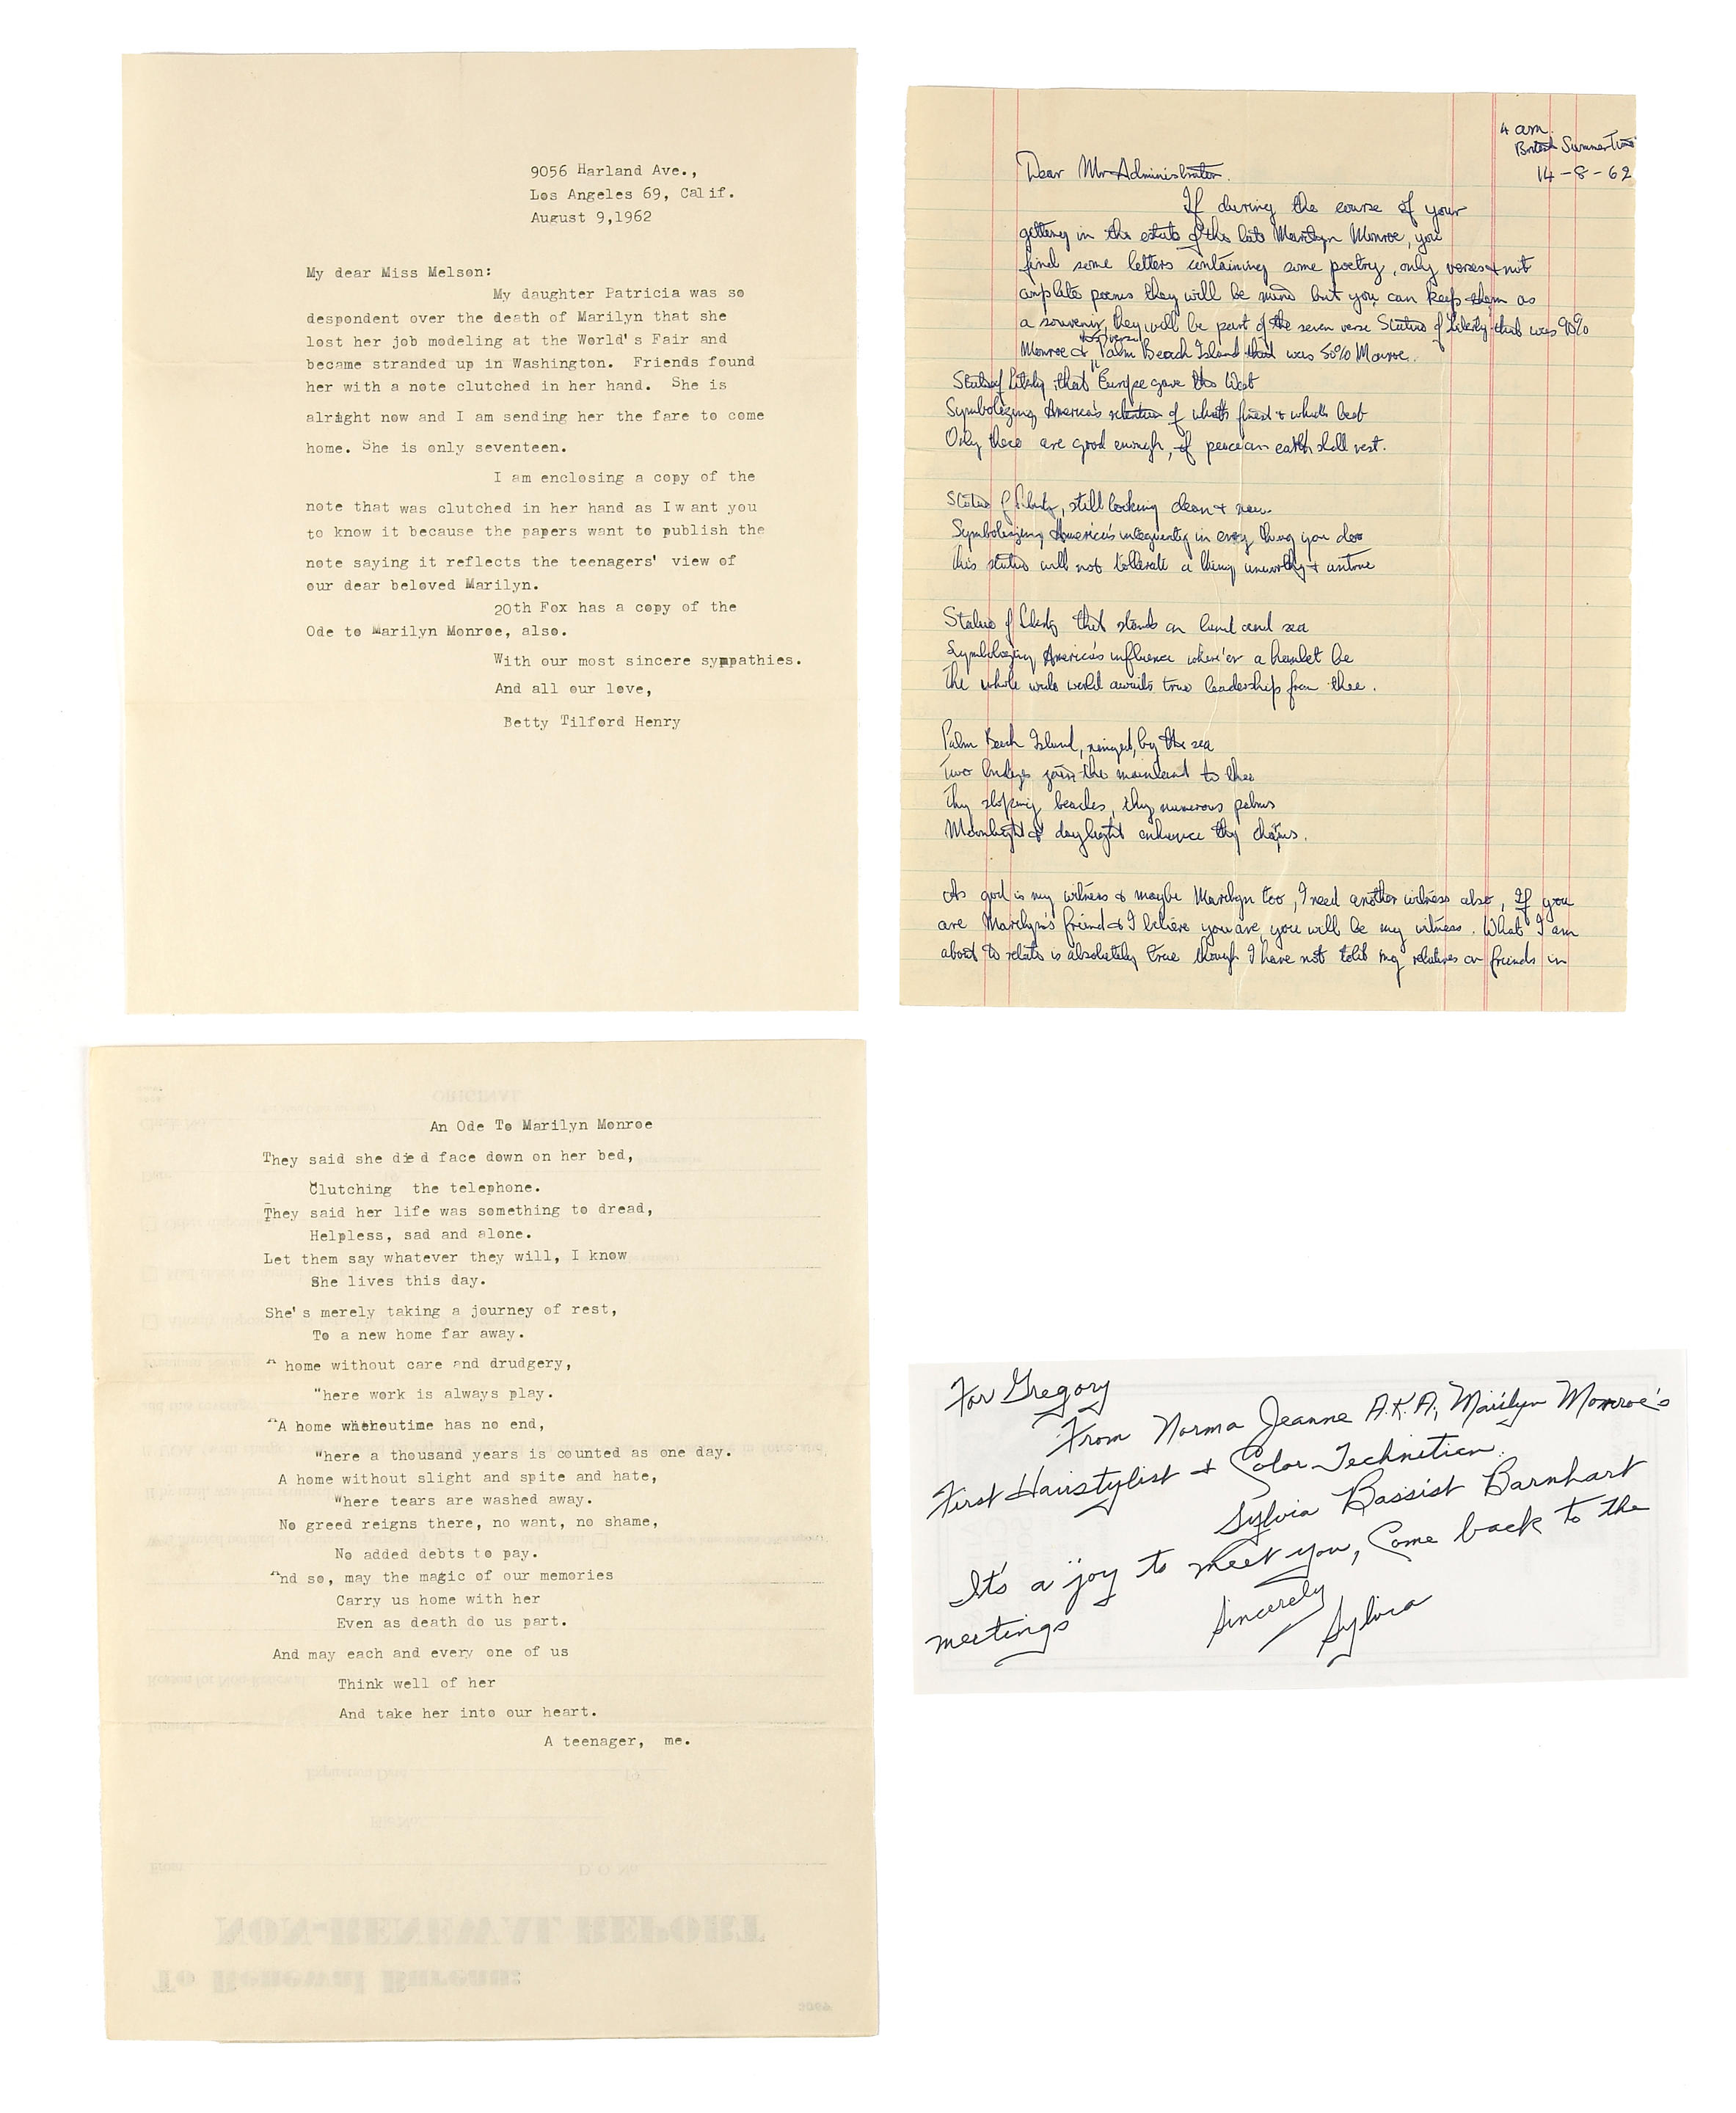 9056 Harland Ave.,
Los Angeles 69, Calif.
August 9,1962
My dear Miss Melson:
My daughter Patricia was so
despondent over the death of Marilyn that she
lost her job modeling at the World's Fair and
became stranded up in Washington. Friends found
her with a note clutched in her hand. She is
alright now and I am sending her the fare to come
home. She is only seventeen.
I am enclosing a copy of the
note that was clutched in her hand as I want you
to know it because the papers want to publish the
note saying it reflects the teenagers' view of
our dear beloved Marilyn.
20th Fox has a copy of the
Ode to Marilyn Monroe, also.
With our most sincere sympathies.
And all our love,
Betty Tilford Henry
4 am.
British Summer Time
14-8-62
Dear Mr Administrator.
If during the course of your
getting in the estate of the late Marilyn Monroe, you
find some letters containing some poetry, only verses & not
complete poems they will be mine but you can keep them as
a souvenir, they will be part of the seven verse Statue of Liberty that was 90%
Monroe & verse Palm Beach Island that was 50% Monroe.
Statue of Liberty that Europe gave the West
Symbolizing America's of what's finest & what's best
Only these are good enough, if peace on earth shall rest.
Statue of Liberty, still looking clean & new
Symbolizing America's integrity in every thing you do
This statue will not tollerate a thing unworthy & untrue
Statue of Liberty that stands on land and sea
Symbolizing America's influence where'er a hamlet be
The whole wide world awaits true leadership from thee.
Palm Beach Island, ringed, by the sea
Two bridges join the mainland to thee
Thy sloping beaches, thy numerous palms
Moonlight & daylight enhance thy charms.
As god is my witness & maybe Marilyn too, I need another witness also, If you
are Marilyn's friend & I believe you are, you will be my witness. What I am
about to relate is absolutely true though I have not told my relatives or friends in
An Ode To Marilyn Monroe
They said she died face down on her bed,
Clutching the telephone.
They said her life was something to dread,
Helpless, sad and alone.
Let them say whatever they will, I know
She lives this day.
She's merely taking a journey of rest,
To a new home far away.
A home without care and drudgery,
"here work is always play.
A home time has no end,
"here a thousand years is counted as one day.
A home without slight and spite and hate,
Where tears are washed away.
No greed reigns there, no want, no shame,
No added debts to pay.
And so, may the magic of our memories
Carry us home with her
Even as death do us part.
And may each and every one of us
Think well of her
And take her into our heart.
A teenager, me.
NON-RENEWAL REPORT
To Renewal Bureau:
For Gregory
From Norma Jeanne A.K.A, Marilyn Monroe's
First Hairstylist & Color Technition.
Sylvia Bassist Barnhart
It's a joy to meet you, Come back to the
meetings
Sincerely
Sylvia